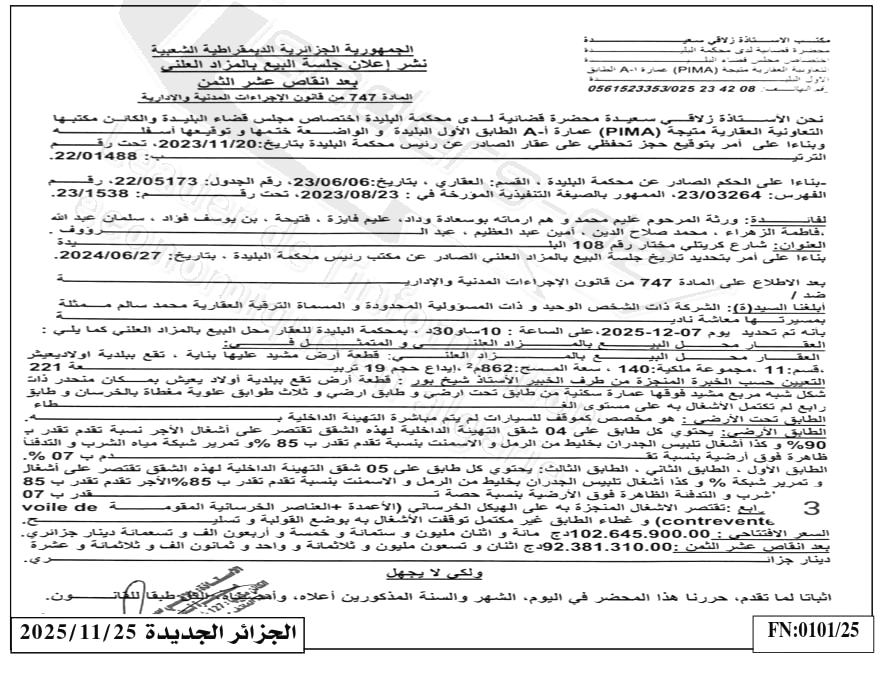 مكتب الاستاذة زلاقي سعيدة
محضرة قضائية لدى محكمة البليدة
اختصاص مجلس قضاء البليدة
التعاونية العقارية متيجة (PIMA) عمارة أ-A الطابق
الاول البليدة
رقم الهاتف: 0561523353/025 23 42 08
الجمهورية الجزائرية الديمقراطية الشعبية
نشر إعلان جلسة البيع بالمزاد العلني
بعد انقاص عشر الثمن
المادة 747 من قانون الإجراءات المدنية والادارية
نحن الأستاذة زلاقي سعيدة محضرة قضائية لدى محكمة البليدة اختصاص مجلس قضاء البليدة والكائن مكتبها
التعاونية العقارية متيجة (PIMA) عمارة أ-A الطابق الأول البليدة و الواضعة ختمها و توقيعها أسفله
وبناءا على أمر بتوقيع حجز تحفظي على عقار الصادر عن رئيس محكمة البليدة بتاريخ:2023/11/20، تحت رقم
الترتيب: 22/01488.
-بناءا على الحكم الصادر عن محكمة البليدة ، القسم: العقاري ، بتاريخ:23/06/06، رقم الجدول: 22/05173، رقم
الفهرس: 23/03264، الممهور بالصيغة التنفيذية المؤرخة في : 2023/08/23، تحت رقم: 23/1538.
لفائدة: ورثة المرحوم عليم محمد و هم ارملته بوسعادة وداد، عليم فايزة ، فتيحة ، بن يوسف فؤاد ، سلمان عبد الله
،فاطمة الزهراء ، محمد صلاح الدين ، أمين عبد العظيم ، عبد الرؤوف .
العنوان: شارع كريتلي مختار رقم 108 البليدة
بناءا على أمر بتحديد تاريخ جلسة البيع بالمزاد العلني الصادر عن مكتب رئيس محكمة البليدة ، بتاريخ: 2024/06/27.
بعد الاطلاع على المادة 747 من قانون الاجراءات المدنية والإدارية
ضد /
أبلغنا السيد(ة): الشركة ذات الشخص الوحيد و ذات المسؤولية المحدودة و المسماة الترقية العقارية محمد سالم ممثلة
بمسيرتها معاشة نادية
بأنه تم تحديد يوم 07-12-2025،على الساعة : 10سا30د ، بمحكمة البليدة للعقار محل البيع بالمزاد العلني كما يلي :
العقار محل البيع بالمزاد العلني و المتمثل في:
العقار محل البيع بالمزاد العلني: قطعة أرض مشيد عليها بناية ، تقع ببلدية اولاديعيش
،قسم:11 ،مجموعة ملكية:140 ، سعة المسح:862م²،إيداع حجم 19 تربيعة 221
التعيين حسب الخبرة المنجزة من طرف الخبير الأستاذ شيخ بور : قطعة أرض تقع ببلدية أولاد يعيش بمكان منحدر ذات
شكل شبه مربع مشيد فوقها عمارة سكنية من طابق تحت ارضي و طابق ارضي و ثلاث طوابق علوية مغطاة بالخرسان و طابق
رابع لم تكتمل الأشغال به على مستوى الغطاء
الطابق تحت الأرضي : هو مخصص كموقف للسيارات لم يتم مباشرة التهيئة الداخلية به.
الطابق الأرضي: يحتوي كل طابق على 04 شقق التهيئة الداخلية لهذه الشقق تقتصر على أشغال الأجر نسبة تقدم تقدر ب
90% و كذا أشغال تلبيس الجدران بخليط من الرمل و الاسمنت بنسبة تقدم تقدر ب 85 %و تمرير شبكة مياه الشرب و التدفئا
ظاهرة فوق أرضية بنسبة تقدم ب 07 %.
الطابق الاول ، الطابق الثاني ، الطابق الثالث: يحتوي كل طابق على 05 شقق التهيئة الداخلية لهذه الشقق تقتصر على أشغال
و تمرير شبكة % و كذا أشغال تلبيس الجدران بخليط من الرمل و الاسمنت بنسبة تقدم تقدر ب 85%الأجر تقدم تقدر ب 85
شرب و التدفئة الظاهرة فوق الأرضية بنسبة حصة تقدر ب 07
3
رابع :تقتصر الاشغال المنجزة به على الهيكل الخرساني (الأعمدة +العناصر الخرسانية المقومة voile de
contrevente) و غطاء الطابق غير مكتمل توقفت الأشغال به بوضع القولبة و تسليح.
السعر الافتتاحي : 102.645.900.00دج مائة و اثنان مليون و ستمائة و خمسة و أربعون الف و تسعمائة دينار جزائري.
بعد انقاص عشر الثمن :92.381.310.00دج اثنان و تسعون مليون و ثلاثمائة و واحد و ثمانون الف و ثلاثمائة و عشرة
دينار جزائري.
ولكي لا يجهل
اثباتا لما تقدم، حررنا هذا المحضر في اليوم، الشهر والسنة المذكورين أعلاه، طبقا للقانون.
الجزائر الجديدة 2025/11/25
FN:0101/25